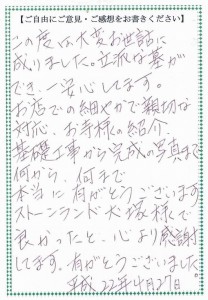 【ご自由にご意見・ご感想をお書きください】
この度は大変お世話に
成りました。立派な墓が
でき、一安心してます。
お店での細やかで親切な
対応、お手様の紹介、
基礎工事から完成の写真まで
何から、何まで
本当に有がとうございます
ストーンランド犬塚様で
良かったと、心より感謝
してます。有がとうございました。
平成22年4月29日